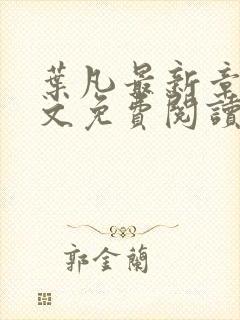 葉凡最新章
文免費閱讀
郭金蘭